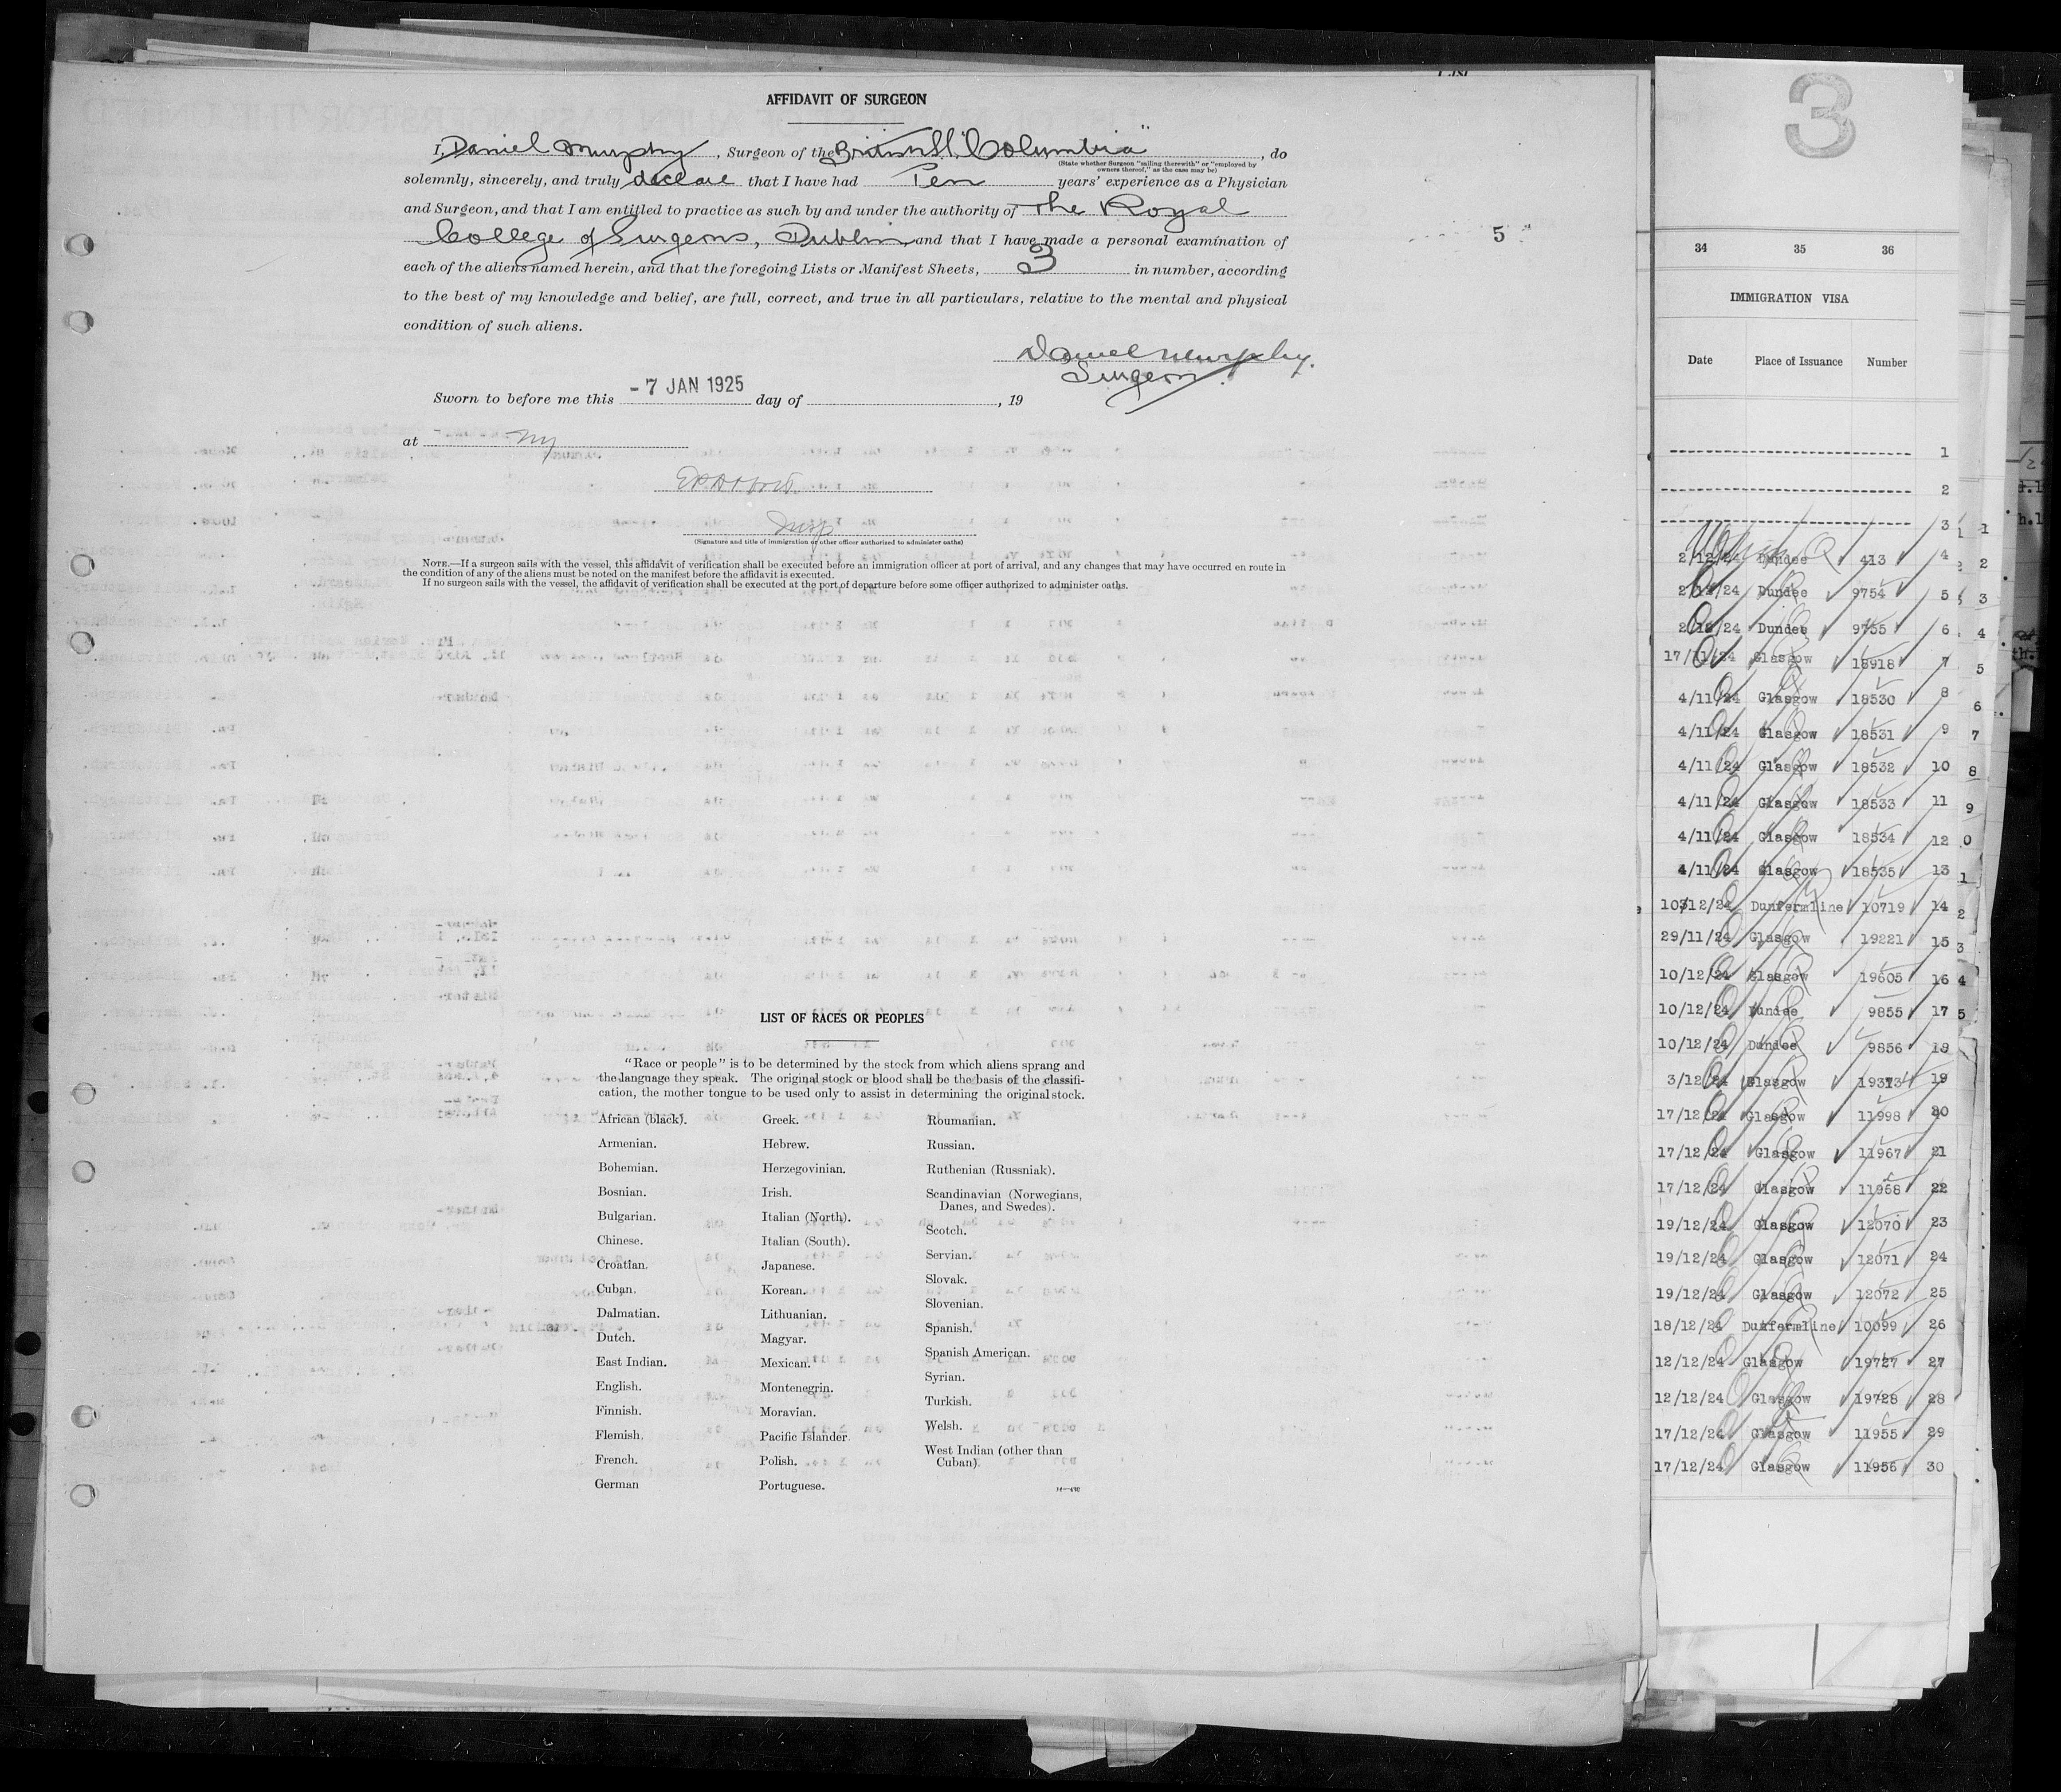 AFFIDAVIT OF SURGEON
I, Daniel Murphy, Surgeon of the British S. "Columbia", do
(State whether Surgeon "sailing therewith" or "employed by
owners thereof," as the case may be)
solemnly, sincerely, and truly declare that I have had Ten years' experience as a Physician
and Surgeon, and that I am entitled to practice as such by and under the authority of the Royal
College of Surgeons, Dublin and that I have made a personal examination of
each of the aliens named herein, and that the foregoing Lists or Manifest Sheets, 3 in number, according
to the best of my knowledge and belief, are full, correct, and true in all particulars, relative to the mental and physical
condition of such aliens.
Daniel Murphy.
Surgeon.
Sworn to before me this - 7 JAN 1925 day of , 19
at NY
Insp
(Signature and title of immigration or other officer authorized to administer oaths)
NOTE.—If a surgeon sails with the vessel, this affidavit of verification shall be executed before an immigration officer at port of arrival, and any changes that may have occurred en route in
the condition of any of the aliens must be noted on the manifest before the affidavit is executed.
If no surgeon sails with the vessel, the affidavit of verification shall be executed at the port of departure before some officer authorized to administer oaths.
LIST OF RACES OR PEOPLES
"Race or people" is to be determined by the stock from which aliens sprang and
the language they speak. The original stock or blood shall be the basis of the classifi-
cation, the mother tongue to be used only to assist in determining the original stock.
African (black).
Armenian.
Bohemian.
Bosnian.
Bulgarian.
Chinese.
Croatian.
Cuban.
Dalmatian.
Dutch.
East Indian.
English.
Finnish.
Flemish.
French.
German
Greek.
Hebrew.
Herzegovinian.
Irish.
Italian (North).
Italian (South).
Japanese.
Korean.
Lithuanian.
Magyar.
Mexican.
Montenegrin.
Moravian.
Pacific Islander
Polish.
Portuguese.
Roumanian.
Russian.
Ruthenian (Russniak).
Scandinavian (Norwegians,
Danes, and Swedes).
Scotch.
Servian.
Slovak.
Slovenian.
Spanish.
Spanish American.
Syrian.
Turkish.
Welsh.
West Indian (other than
Cuban).
5
3
34 35 36
IMMIGRATION VISA
Date Place of Issuance Number
1
2
3
2/12/24 Dundee 413 4
2/12/24 Dundee 9754 5
2/12/24 Dundee 9755 6
17/11/24 Glasgow 18918 7
4/11/24 Glasgow 18530 8
4/11/24 Glasgow 18531 9
4/11/24 Glasgow 18532 10
4/11/24 Glasgow 18533 11
4/11/24 Glasgow 18534 12
4/11/24 Glasgow 18535 13
10/12/24 Dunfermline 10719 14
29/11/24 Glasgow 19221 15
10/12/24 Glasgow 19605 16
10/12/24 Dundee 9855 17
10/12/24 Dundee 9856 18
3/12/24 Glasgow 19373 19
17/12/24 Glasgow 11998 20
17/12/24 Glasgow 11967 21
17/12/24 Glasgow 11968 22
19/12/24 Glasgow 12070 23
19/12/24 Glasgow 12071 24
19/12/24 Glasgow 12072 25
18/12/24 Dunfermline 10099 26
12/12/24 Glasgow 19727 27
12/12/24 Glasgow 19728 28
17/12/24 Glasgow 11955 29
17/12/24 Glasgow 11956 30